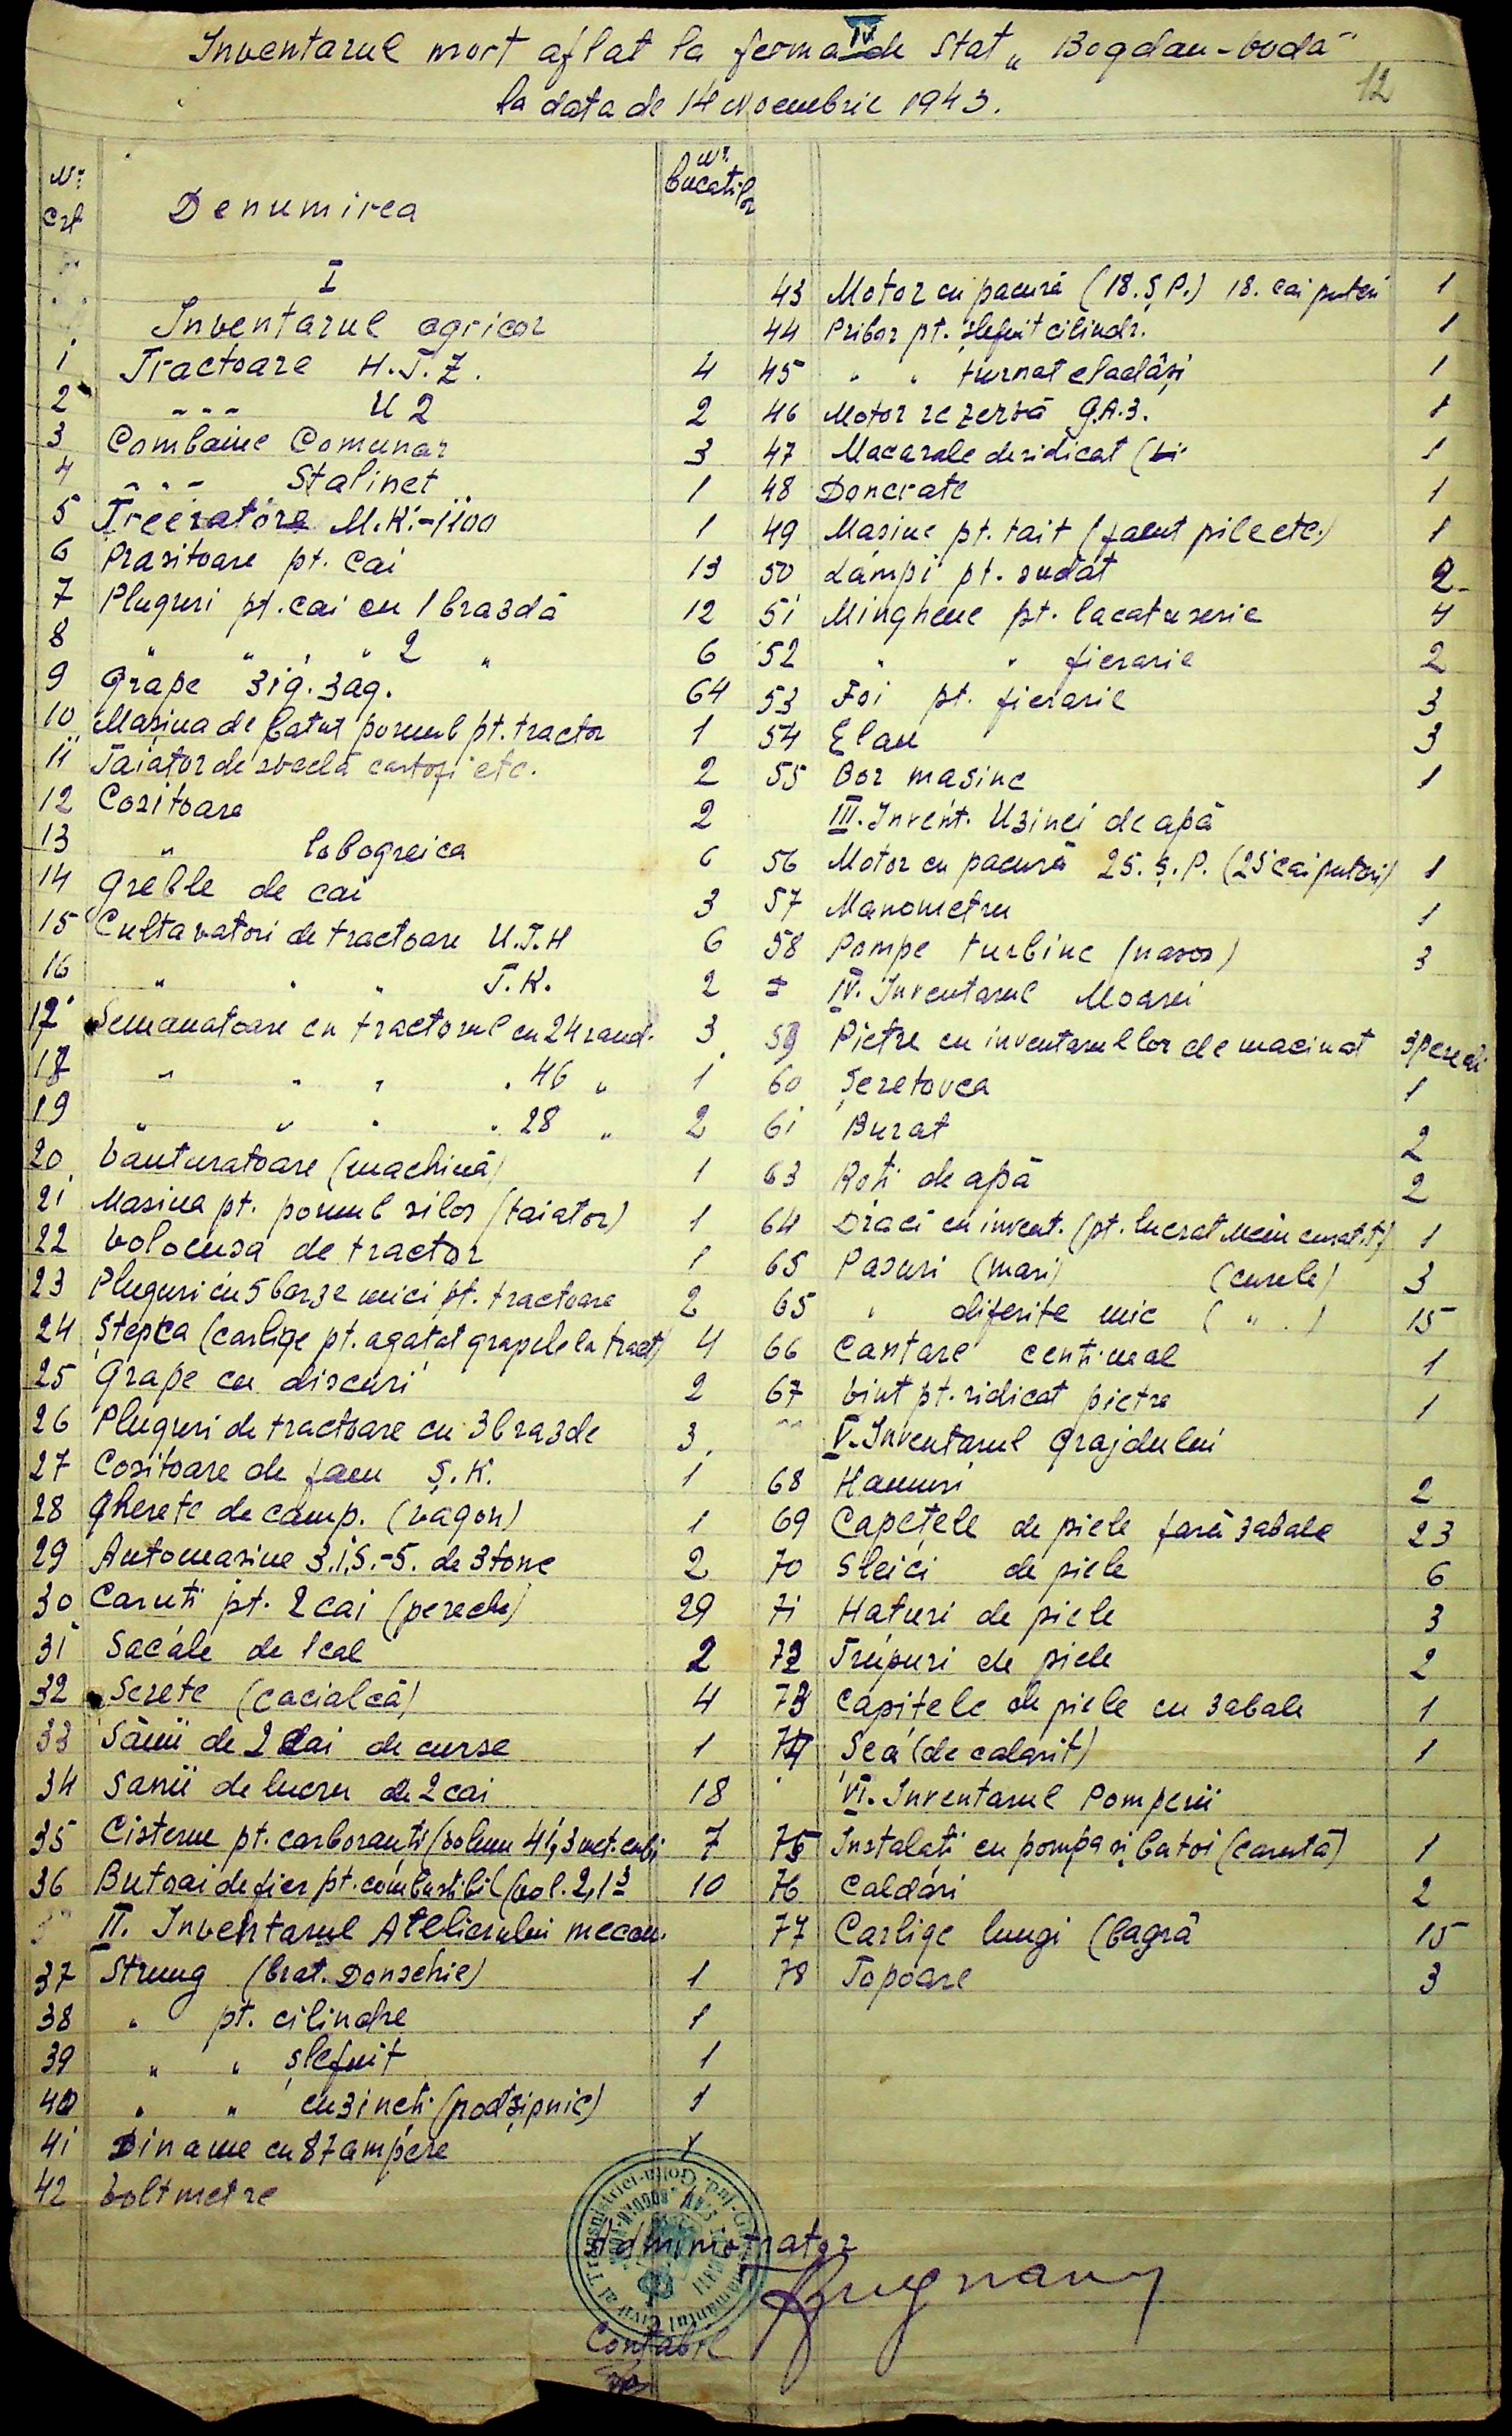 Inventarul mort aflat la ferma IV de Stat „Bogdan-Vodă"
la data de 14 Noembrie 1943.
12
Nr. Crt
Denumirea
Nr. bucatilor
I
Inventarul agricol
1 Tractoare H.T.Z. 4
2 " " " U 2 2
3 Combaine Comunar 3
4 " " " Stalinet 1
5 Treeratóre M.K.-1100 1
6 Prasitoare pt. cai 13
7 Pluguri pt. cai cu 1 brazdă 12
8 " " " " 2 " 6
9 Grape zig. zag. 64
10 Mașina de batut porumb pt. tractor 1
11 Taiator de sveclă cartofi etc. 2
12 Cositoare 2
13 " lobogreica 6
14 Greble de cai 3
15 Cultavatori de tractoare U.T.H 6
16 " " " T.K. 2
17 Semanatoare cu tractorul cu 24 rand. 3
18 " " " " 46 " 1
19 " " " " 28 " 2
20 Vanturatoare (machină) 1
21 Masina pt. porumb silos (taiator) 1
22 Volocusa de tractor 1
23 Pluguri cu 5 barze mici pt. tractoare 2
24 Ștepca (carlige pt. agatat grapele la tract) 4
25 Grape cu discuri 2
26 Pluguri de tractoare cu 3 brazde 3
27 Cositoare de fan Ș.K. 1
28 Gherete de camp. (vagon) 1
29 Automasine 3.i.S.-5. de 3 tone 2
30 Caruti pt. 2 cai (perechi) 29
31 Sacale de 1 cal 2
32 Serete (cacialcă) 4
33 Sănii de 2 cai de curse 1
34 Sanii de lucru de 2 cai 18
35 Cisterne pt. carboranți (volum 41,3 met. cubi 7
36 Butoai de fier pt. combustibil (vol. 2,1 3 10
II. Inventarul Atelierului mecan.
37 Strung (brat. Donschie) 1
38 " pt. cilindre 1
39 " " șlefuit 1
40 " " cuzineți (podșipnic) 1
41 Diname cu 87 ampere 1
42 Voltmetre
43 Motor cu pacură (18.Ș P.) 18. cai puteri 1
44 Pribor pt. șlefuit cilindr. 1
45 " " turnat eladâși 1
46 Motor rezervă G.A.3. 1
47 Macarale de ridicat ( 1
48 Doncrate 1
49 Masine pt. tait (facut pile etc.) 1
50 Lămpi pt. sudat 2
51 Minghene pt. lacatuserie 4
52 " " fierarie 2
53 Foi pt. fierarie 3
54 Elan 3
55 Bor masine 1
III. Invent. Uzinei de apă
56 Motor cu pacură 25. Ș. P. (25 cai puteri) 1
57 Manometru 1
58 Pompe turbine (nasos) 3
IV. Inventarul Moarei
59 Pietre cu inventarul lor de macinat 3 perechi
60 Șeretovca 1
61 Burat 2
63 Roti de apă 2
64 Draci cu invent. (pt. lucrat 1
65 Pasuri (mari) (curele) 3
65 " diferite mic ( " . ) 15
66 Cantare centimal 1
67 Vint pt. ridicat pietre 1
V. Inventarul Grajdului
68 Hamuri 2
69 Capețele de piele fară zabale 23
70 Sleici de piele 6
71 Haturi de piele 3
72 Trupuri de piele 2
73 Capițele de piele cu zabale 1
74 Sea (de calarit) 1
VI. Inventarul Pomperii
75 Instalati cu pompa și batoi (carută) 1
76 Caldări 2
77 Carlige lungi (bagră 15
78 Topoare 3
Administrator
Contabil